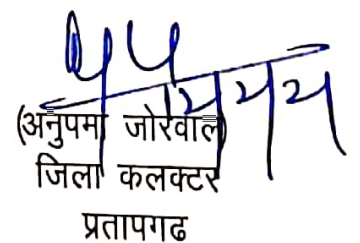 (अनुपमा जोरवाल)
जिला कलक्टर
प्रतापगढ